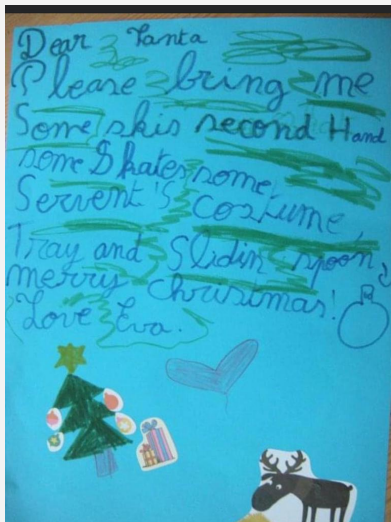 Dear Santa
Please bring me
Some skis second Hand
some Skates some
Servent's costume,
Tray and Slidin spoon,
merry christmas!
Love Eva.